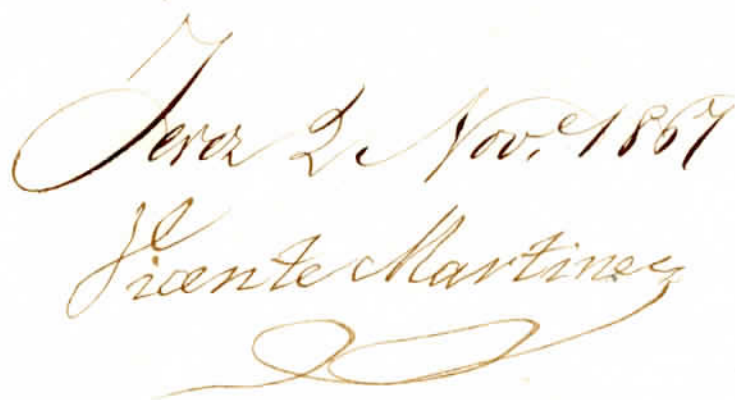 Jerez 2 Nov.e 1867
Vicente Martinez